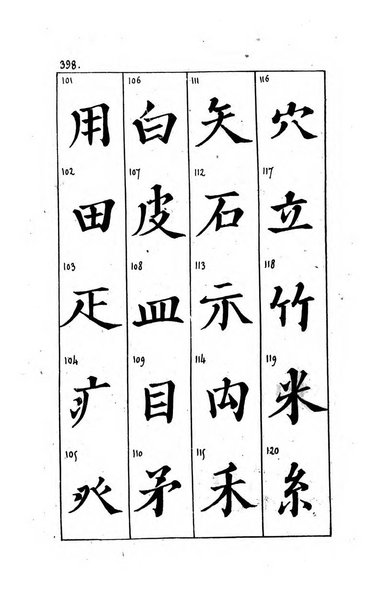 398.
101
用
102
田
103
疋
104
疒
105
癶
106
白
107
皮
108
皿
109
目
110
矛
111
矢
112
石
113
示
114
禸
115
禾
116
穴
117
立
118
竹
119
米
120
糸